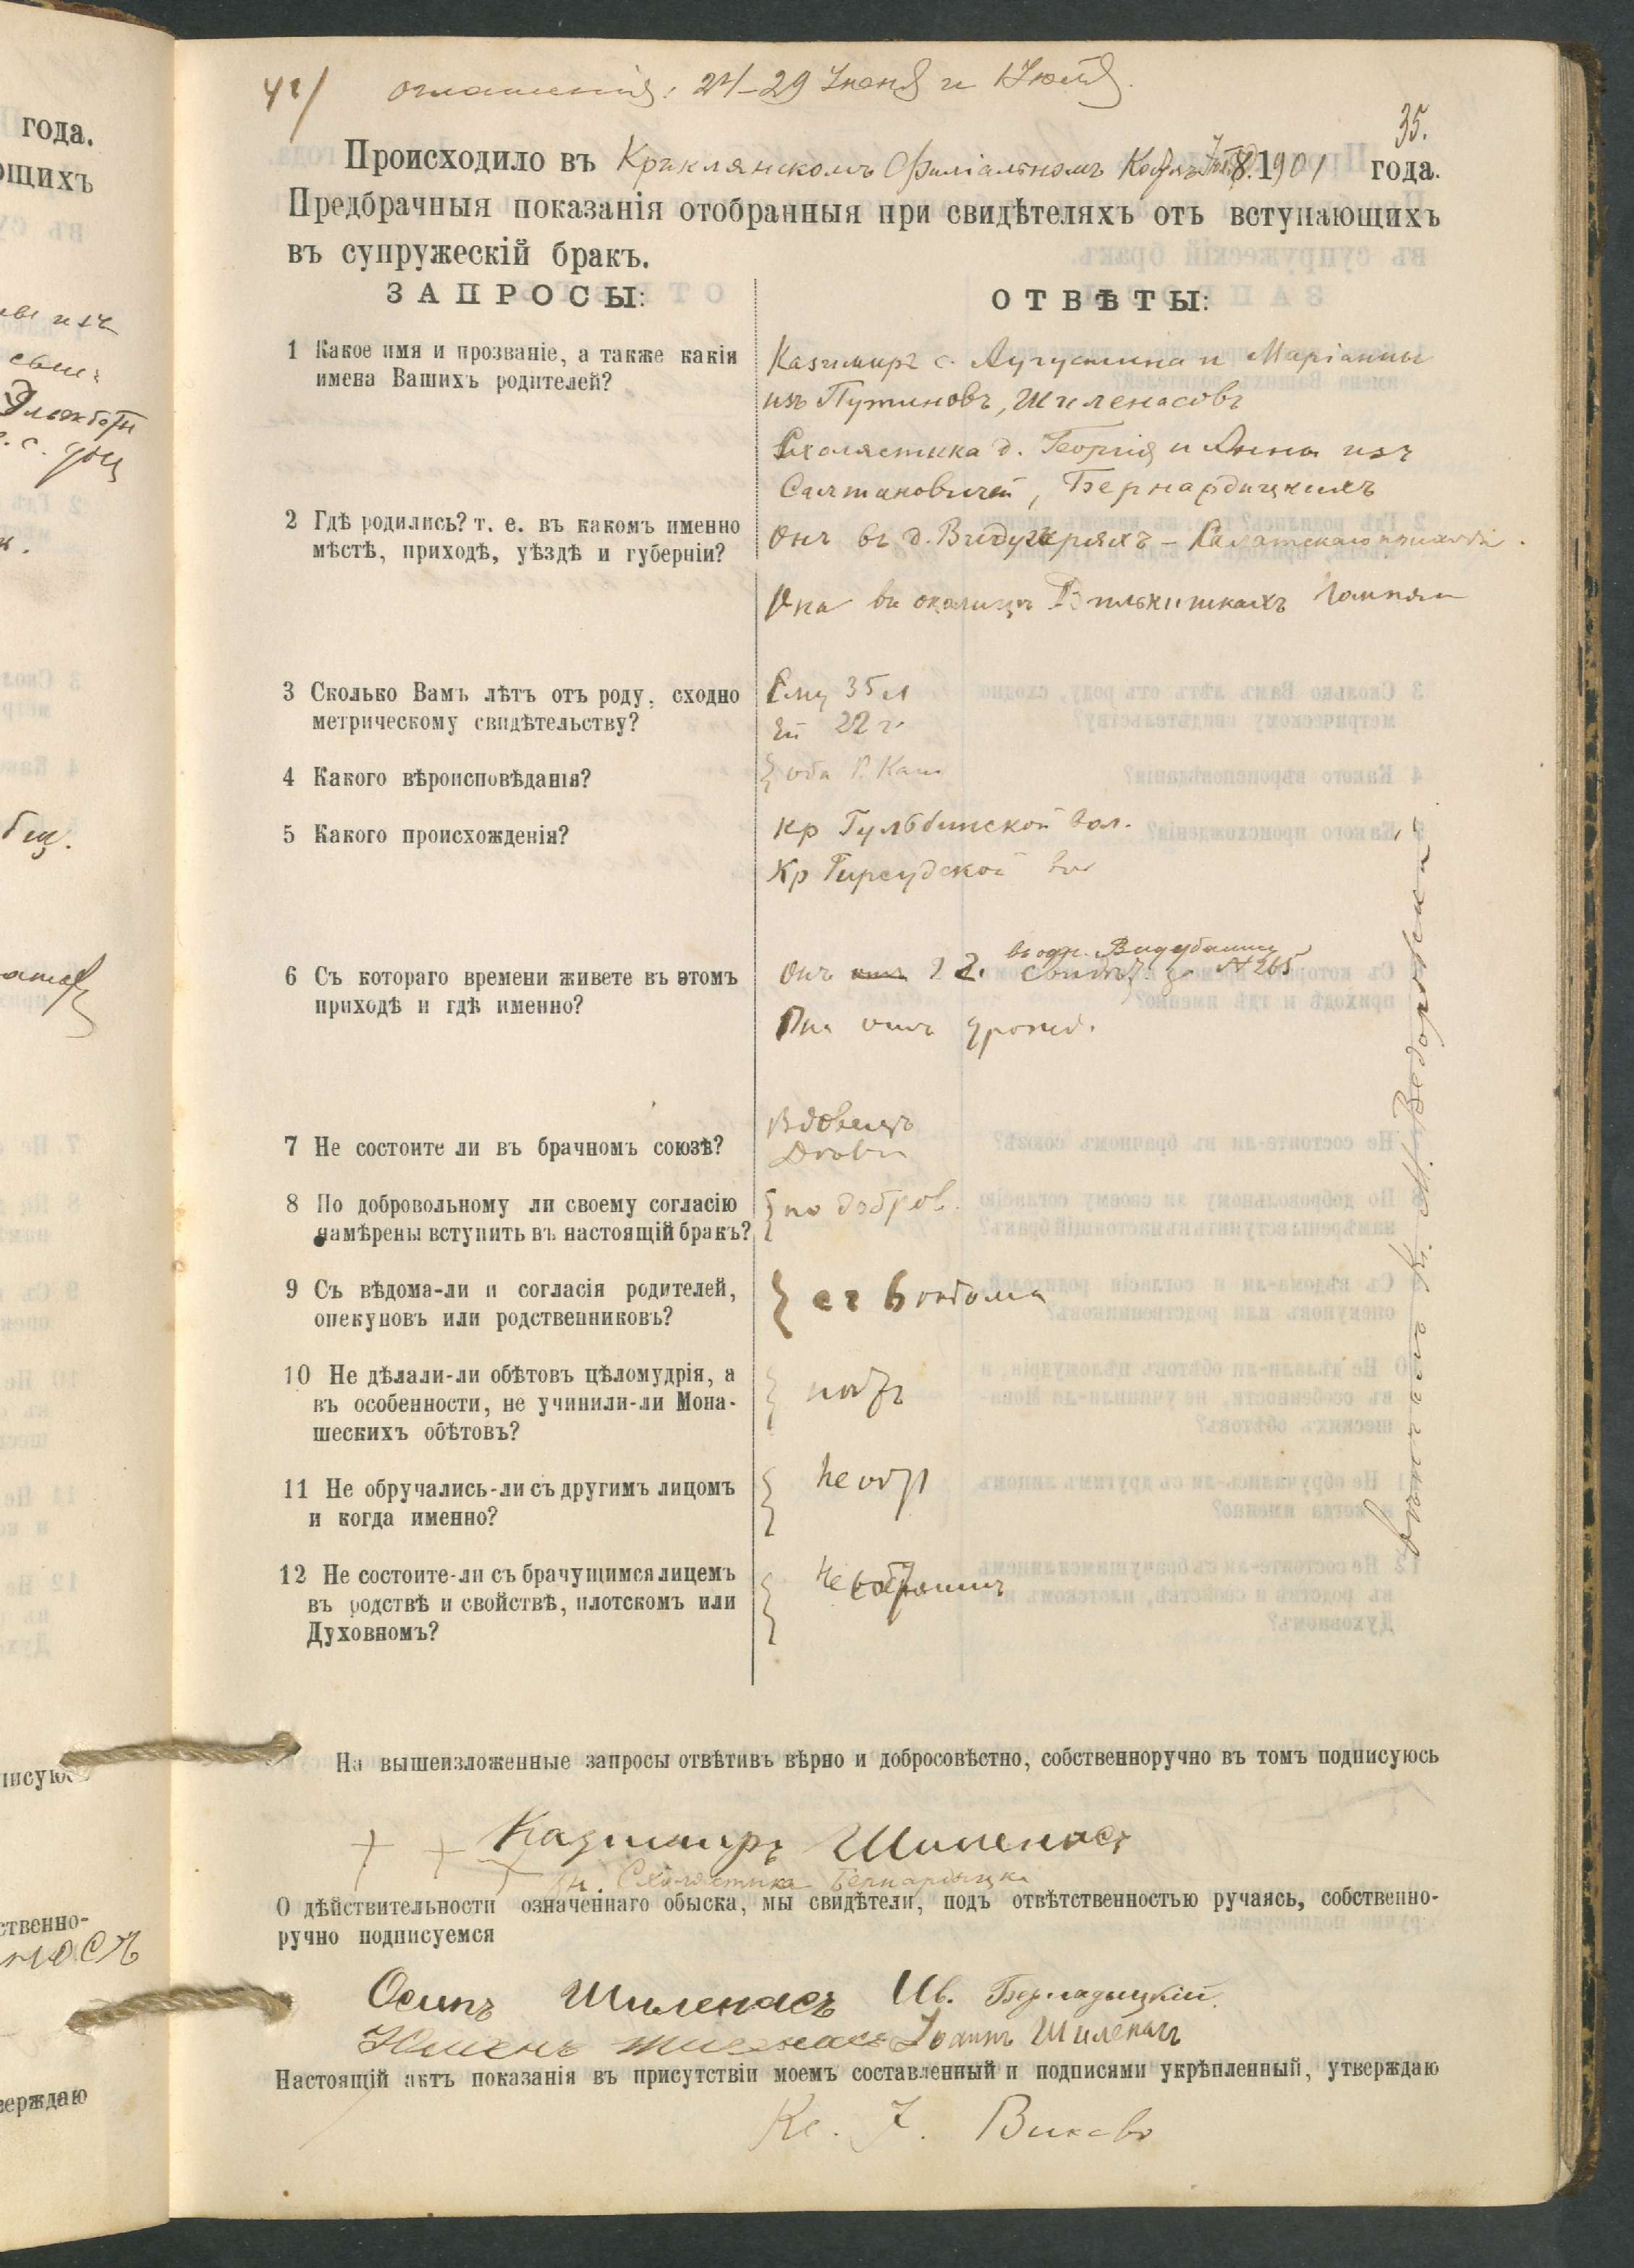 41/ оглашенія: 24–29 Іюня и 1 Юля.
35.
Происходило въ Крыклянскомъ Филіальномъ Кост. Юля 8. 1901 года.
Предбрачныя показанія отобранныя при свидѣтеляхъ отъ вступающихъ
въ супружескій бракъ.
ЗАПРОСЫ:
ОТВѢТЫ:
1 Какое имя и прозваніе, а также какія
имена Вашихъ родителей?
Казимиръ с. Аугустина и Маріанны
изъ Путиновъ, Шиленасовъ
Схолястика д. Георгія и Анны изъ
Салтановичей, Бернардицкихъ
2 Гдѣ родились? т. е. въ какомъ именно
мѣстѣ, приходѣ, уѣздѣ и губерніи?
Онъ въ д. — прихода.
Она въ околицѣ Вилькишкахъ
3 Сколько Вамъ лѣтъ отъ роду, сходно
метрическому свидѣтельству?
Ему 35 л
Ей 22 г.
4 Какого вѣроисповѣданія?
оба Р. Кат
5 Какого происхожденія?
Кр Гульбинской вол.
Кр Гирсудской вол
6 Съ котораго времени живете въ этомъ
приходѣ и гдѣ именно?
Онъ 2. свидѣт. за № 265
Она отъ урожд.
7 Не состоите ли въ брачномъ союзѣ?
Вдовецъ
Дѣвиц
8 По добровольному ли своему согласію
намѣрены вступить въ настоящій бракъ?
по добров.
9 Съ вѣдома-ли и согласія родителей,
опекуновъ или родственниковъ?
съ вѣдома
10 Не дѣлали-ли обѣтовъ цѣломудрія, а
въ особенности, не учинили-ли Мона-
шескихъ обѣтовъ?
11 Не обручались-ли съ другимъ лицомъ
и когда именно?
Не обр
12 Не состоите-ли съ брачущимся лицемъ
въ родствѣ и свойствѣ, плотскомъ или
Духовномъ?
Не
На вышеизложенные запросы отвѣтивъ вѣрно и добросовѣстно, собственноручно въ томъ подписуюсь
+ + + Казимиръ Шиленасъ
Схолястика Бернардицка
О дѣйствительности означеннаго обыска, мы свидѣтели, подъ отвѣтственностью ручаясь, собственно-
ручно подписуемся
Осипъ Шиленасъ Ив. Бернадыцкій.
Юліенъ Шиленасъ Іоаннъ Шиленасъ
Настоящій актъ показанія въ присутствіи моемъ составленный и подписями укрѣпленный, утверждаю
Кс.